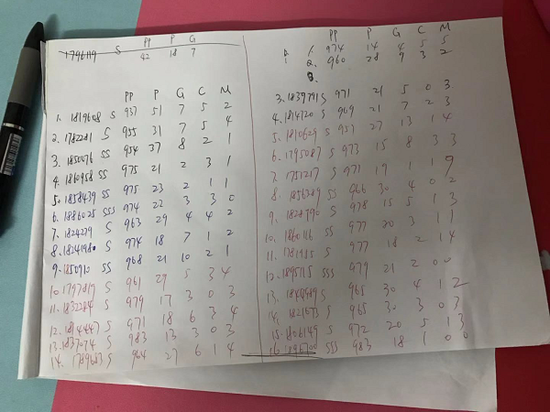 PP P G
1796119 S 42 18 7
PP P G C M
1. 1819608 S 937 51 7 5 2
2. 1782281 S 955 31 7 5 4
3. 1850076 SS 954 37 8 2 1
4. 1860958 SS 975 21 2 3 1
5. 1858439 SS 975 23 2 1 1
6. 1886025 SSS 974 22 3 3 0
7. 1824279 S 963 29 4 4 2
8. S 974 18 7 1 2
9. SS 968 21 10 2 1
10. 1797817 S 961 27 5 3 4
11. 1832284 S 979 17 3 0 3
12. 1814447 S 971 18 6 3 4
13. 1837074 S 983 13 3 0 3
14. S 964 27 6 1 4
PP P G C M
1. 974 14 4 5 5
2. 960 28 9 3 2
3. 1839791 S 971 21 5 0 3
4. 1814720 S 969 21 7 2 3
5. 1810629 S 937 27 13 14
6. 1795087 S 973 15 8 3 3
7. 1751217 S 971 19 1 1 9
8. SS 966 30 4 0 2
9. S 978 15 5 1 3
10. SS 977 20 3 1 1
11. S 977 18 2 1 4
12. SSS 979 21 2 0 0
13. SS 965 30 4 1 2
14. S 965 30 3 0 3
15. 1806149 S 972 20 5 1 3
16. SSS 983 18 1 0 0